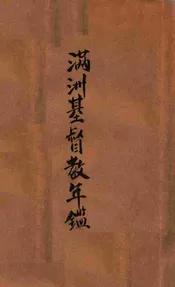 満洲基督教年鑑